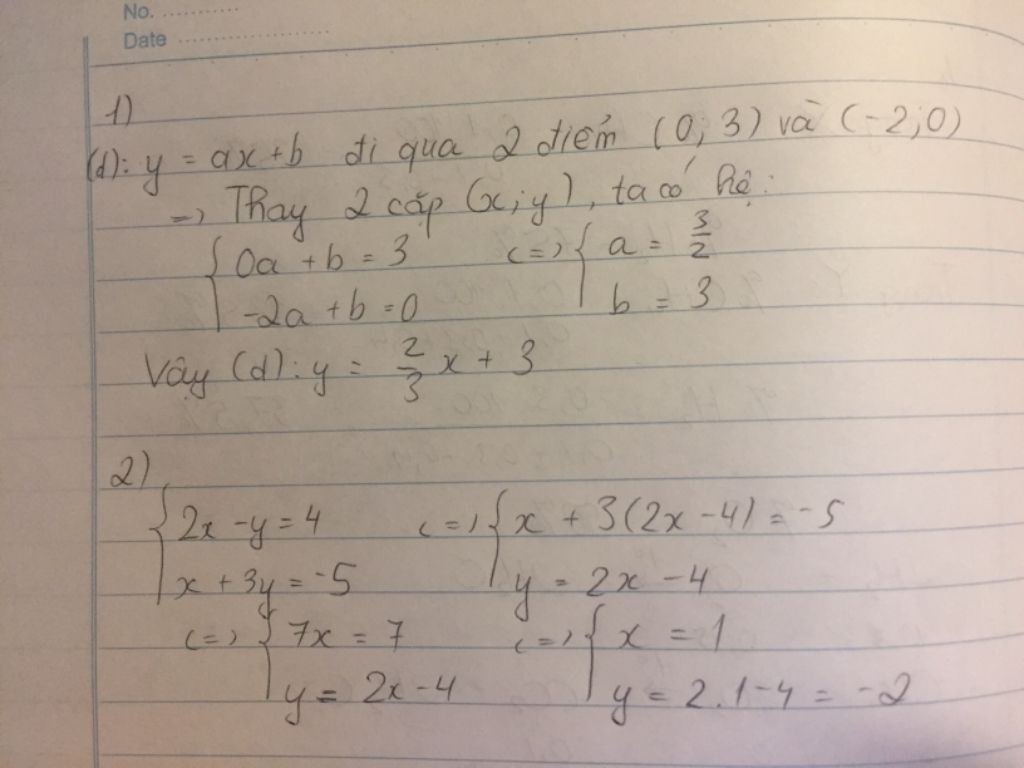 No. ............
Date ........................
1)
(d): y = ax+b đi qua 2 điểm (0; 3) và (-2; 0)
=> Thay 2 cặp (x; y), ta có hệ:
{ 0a + b = 3 <=> { a = 3/2
{ -2a + b = 0 { b = 3
Vậy (d): y = 2/3 x + 3
2)
{ 2x - y = 4 <=> { x + 3(2x - 4) = -5
{ x + 3y = -5 { y = 2x - 4
<=> { 7x = 7 <=> { x = 1
{ y = 2x - 4 { y = 2.1 - 4 = -2